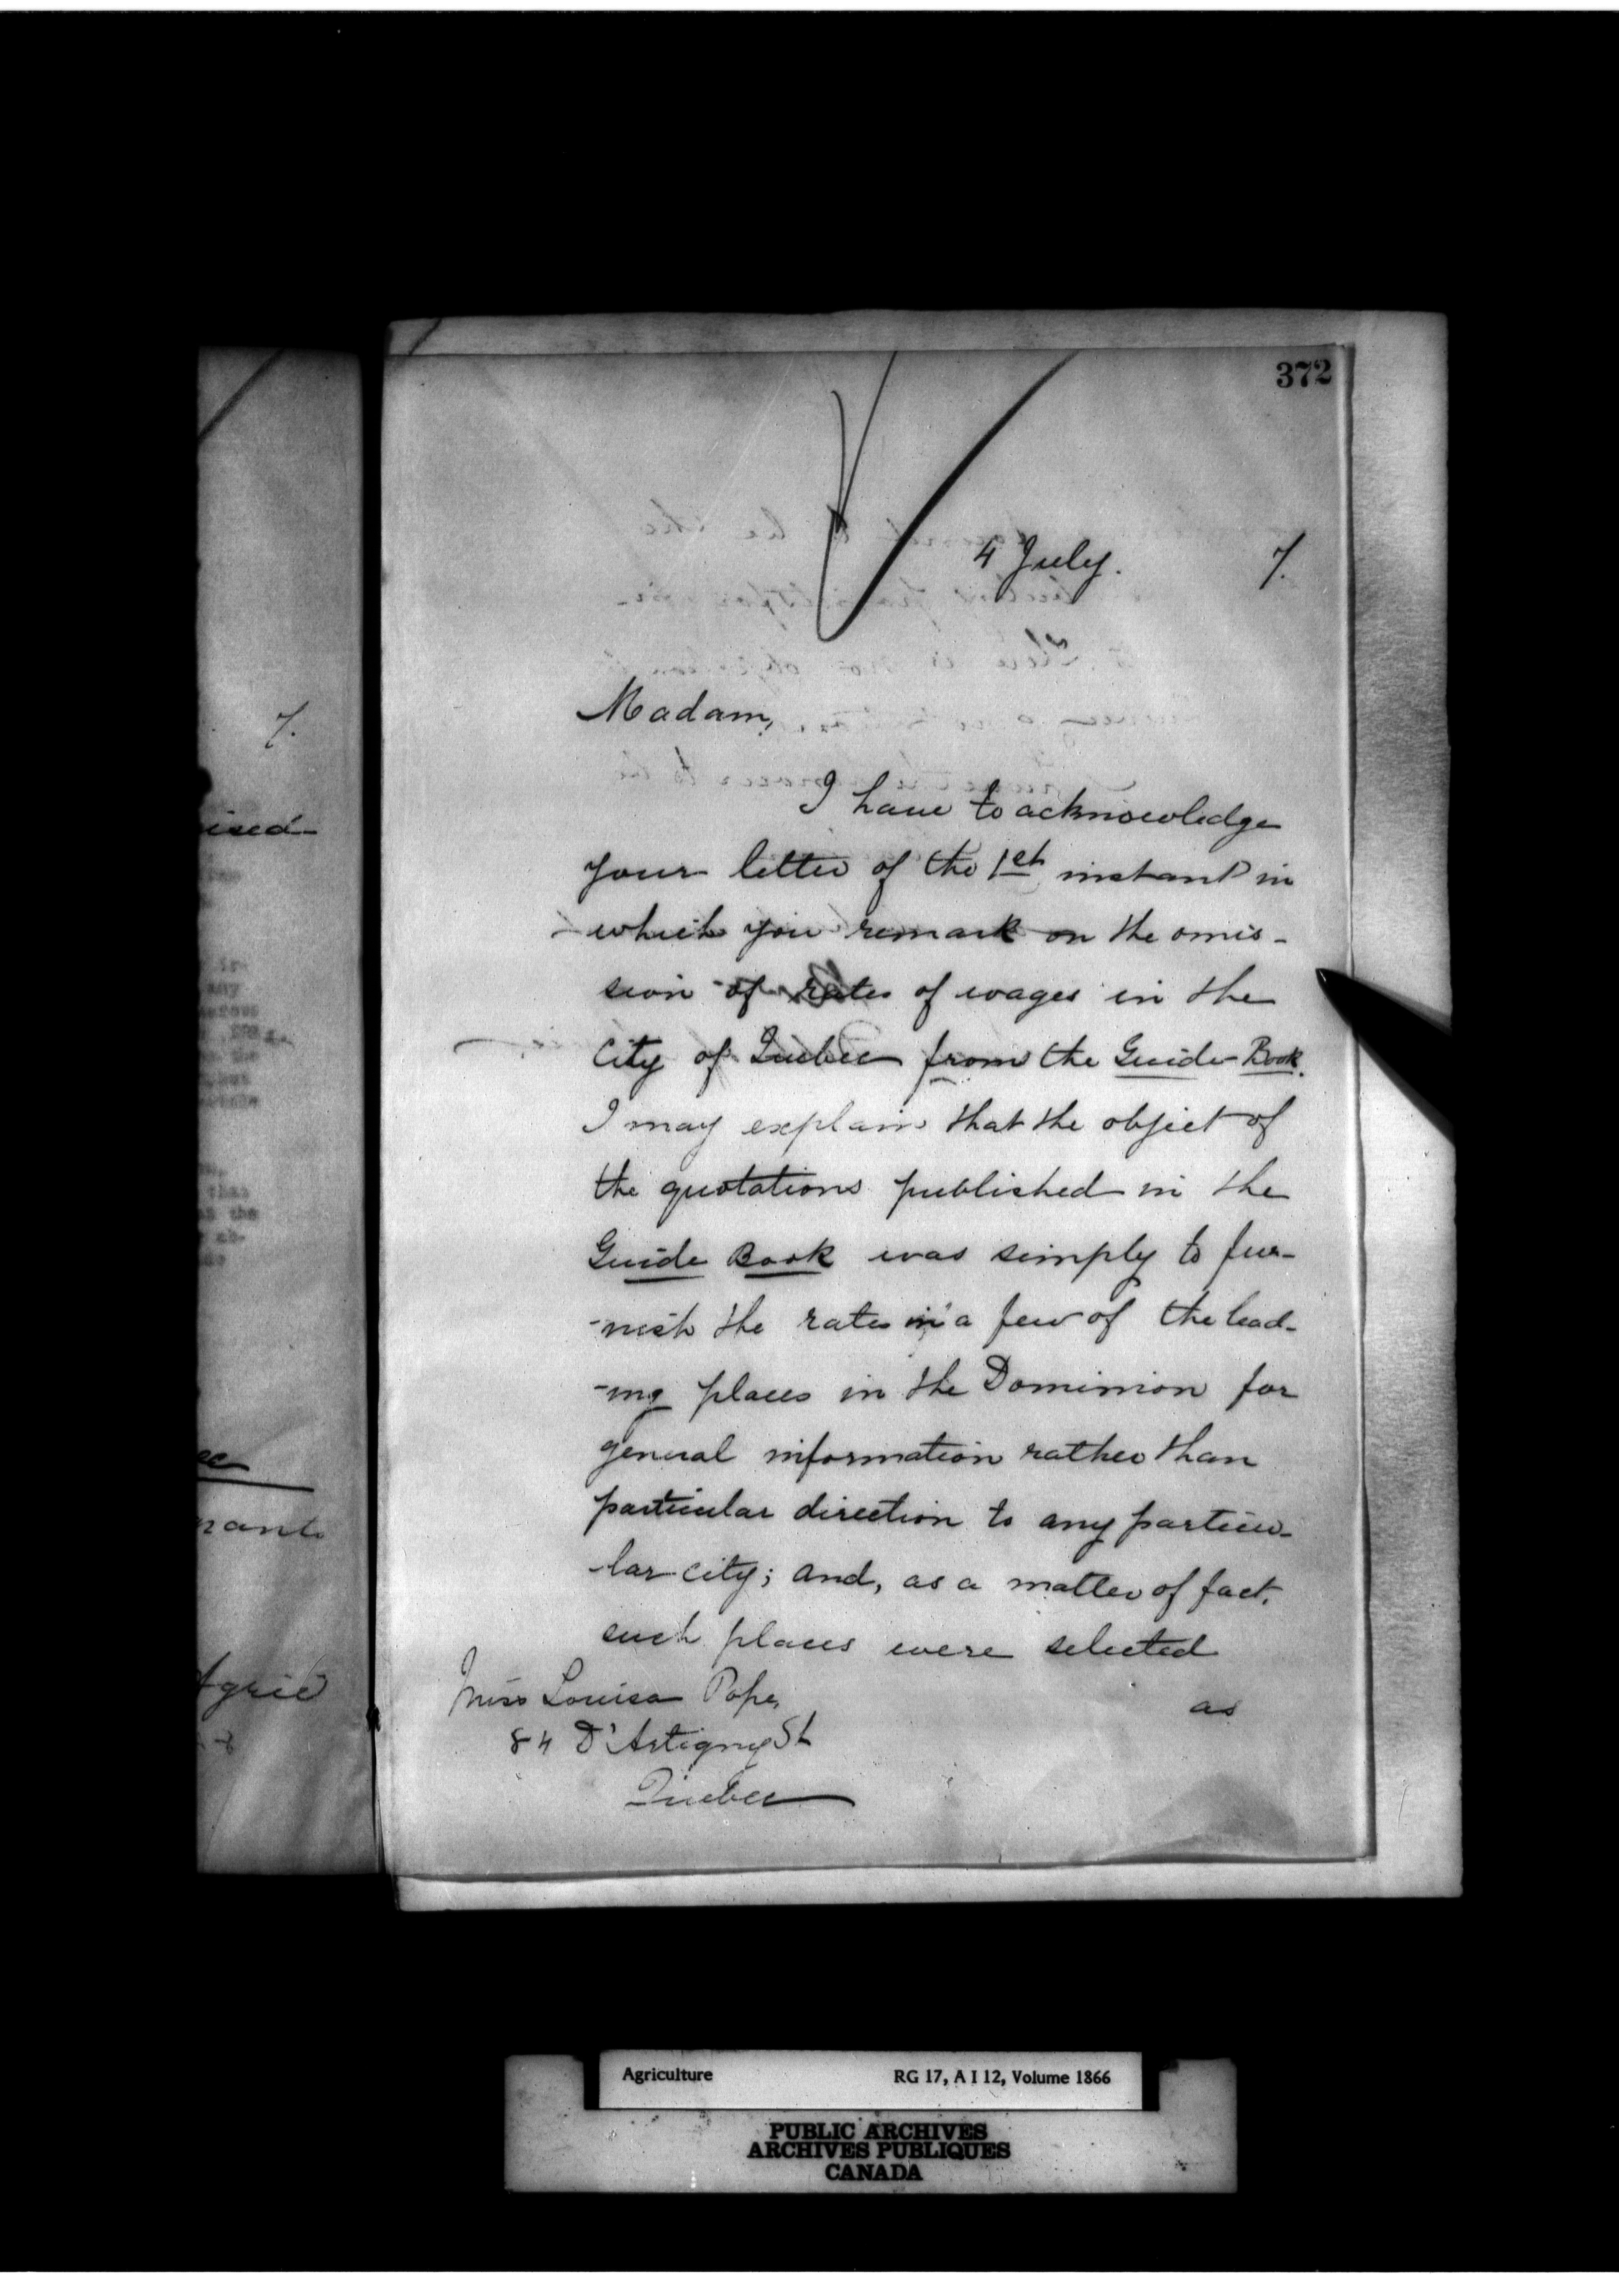 372
4 July. 7.
Madam,
I have to acknowledge
your letter of the 1st instant in
which you remark on the omis-
sion of rates of wages in the
City of Quebec from the Guide-Book.
I may explain that the object of
the quotations published in the
Guide Book was simply to fur-
-nish the rates in a few of the lead-
-ing places in the Dominion for
general information rather than
particular direction to any particu-
-lar city; and, as a matter of fact,
such places were selected
as
Miss Louisa Pope,
84 D'Artigny St
Quebec
7.
ised
any
than
the
rants
Agric
Agriculture RG 17, A I 12, Volume 1866
PUBLIC ARCHIVES
ARCHIVES PUBLIQUES
CANADA